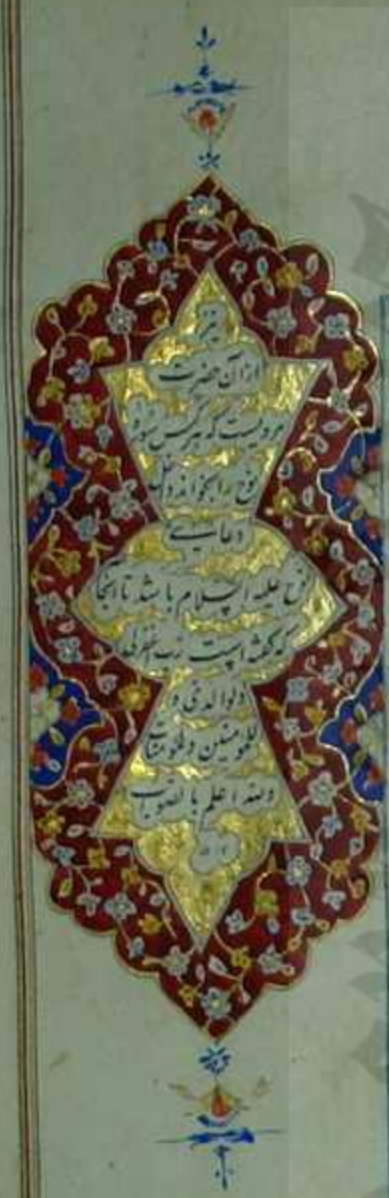 نیز
ازان حضرت
مرویست که هرکس سوره
نوح را بخواند داخل
دعای
نوح علیه السلام باشد تا آنجا
که گفته است رب اغفرلی
ولوالدی و
للمومنین و المومنات
والله اعلم بالصواب